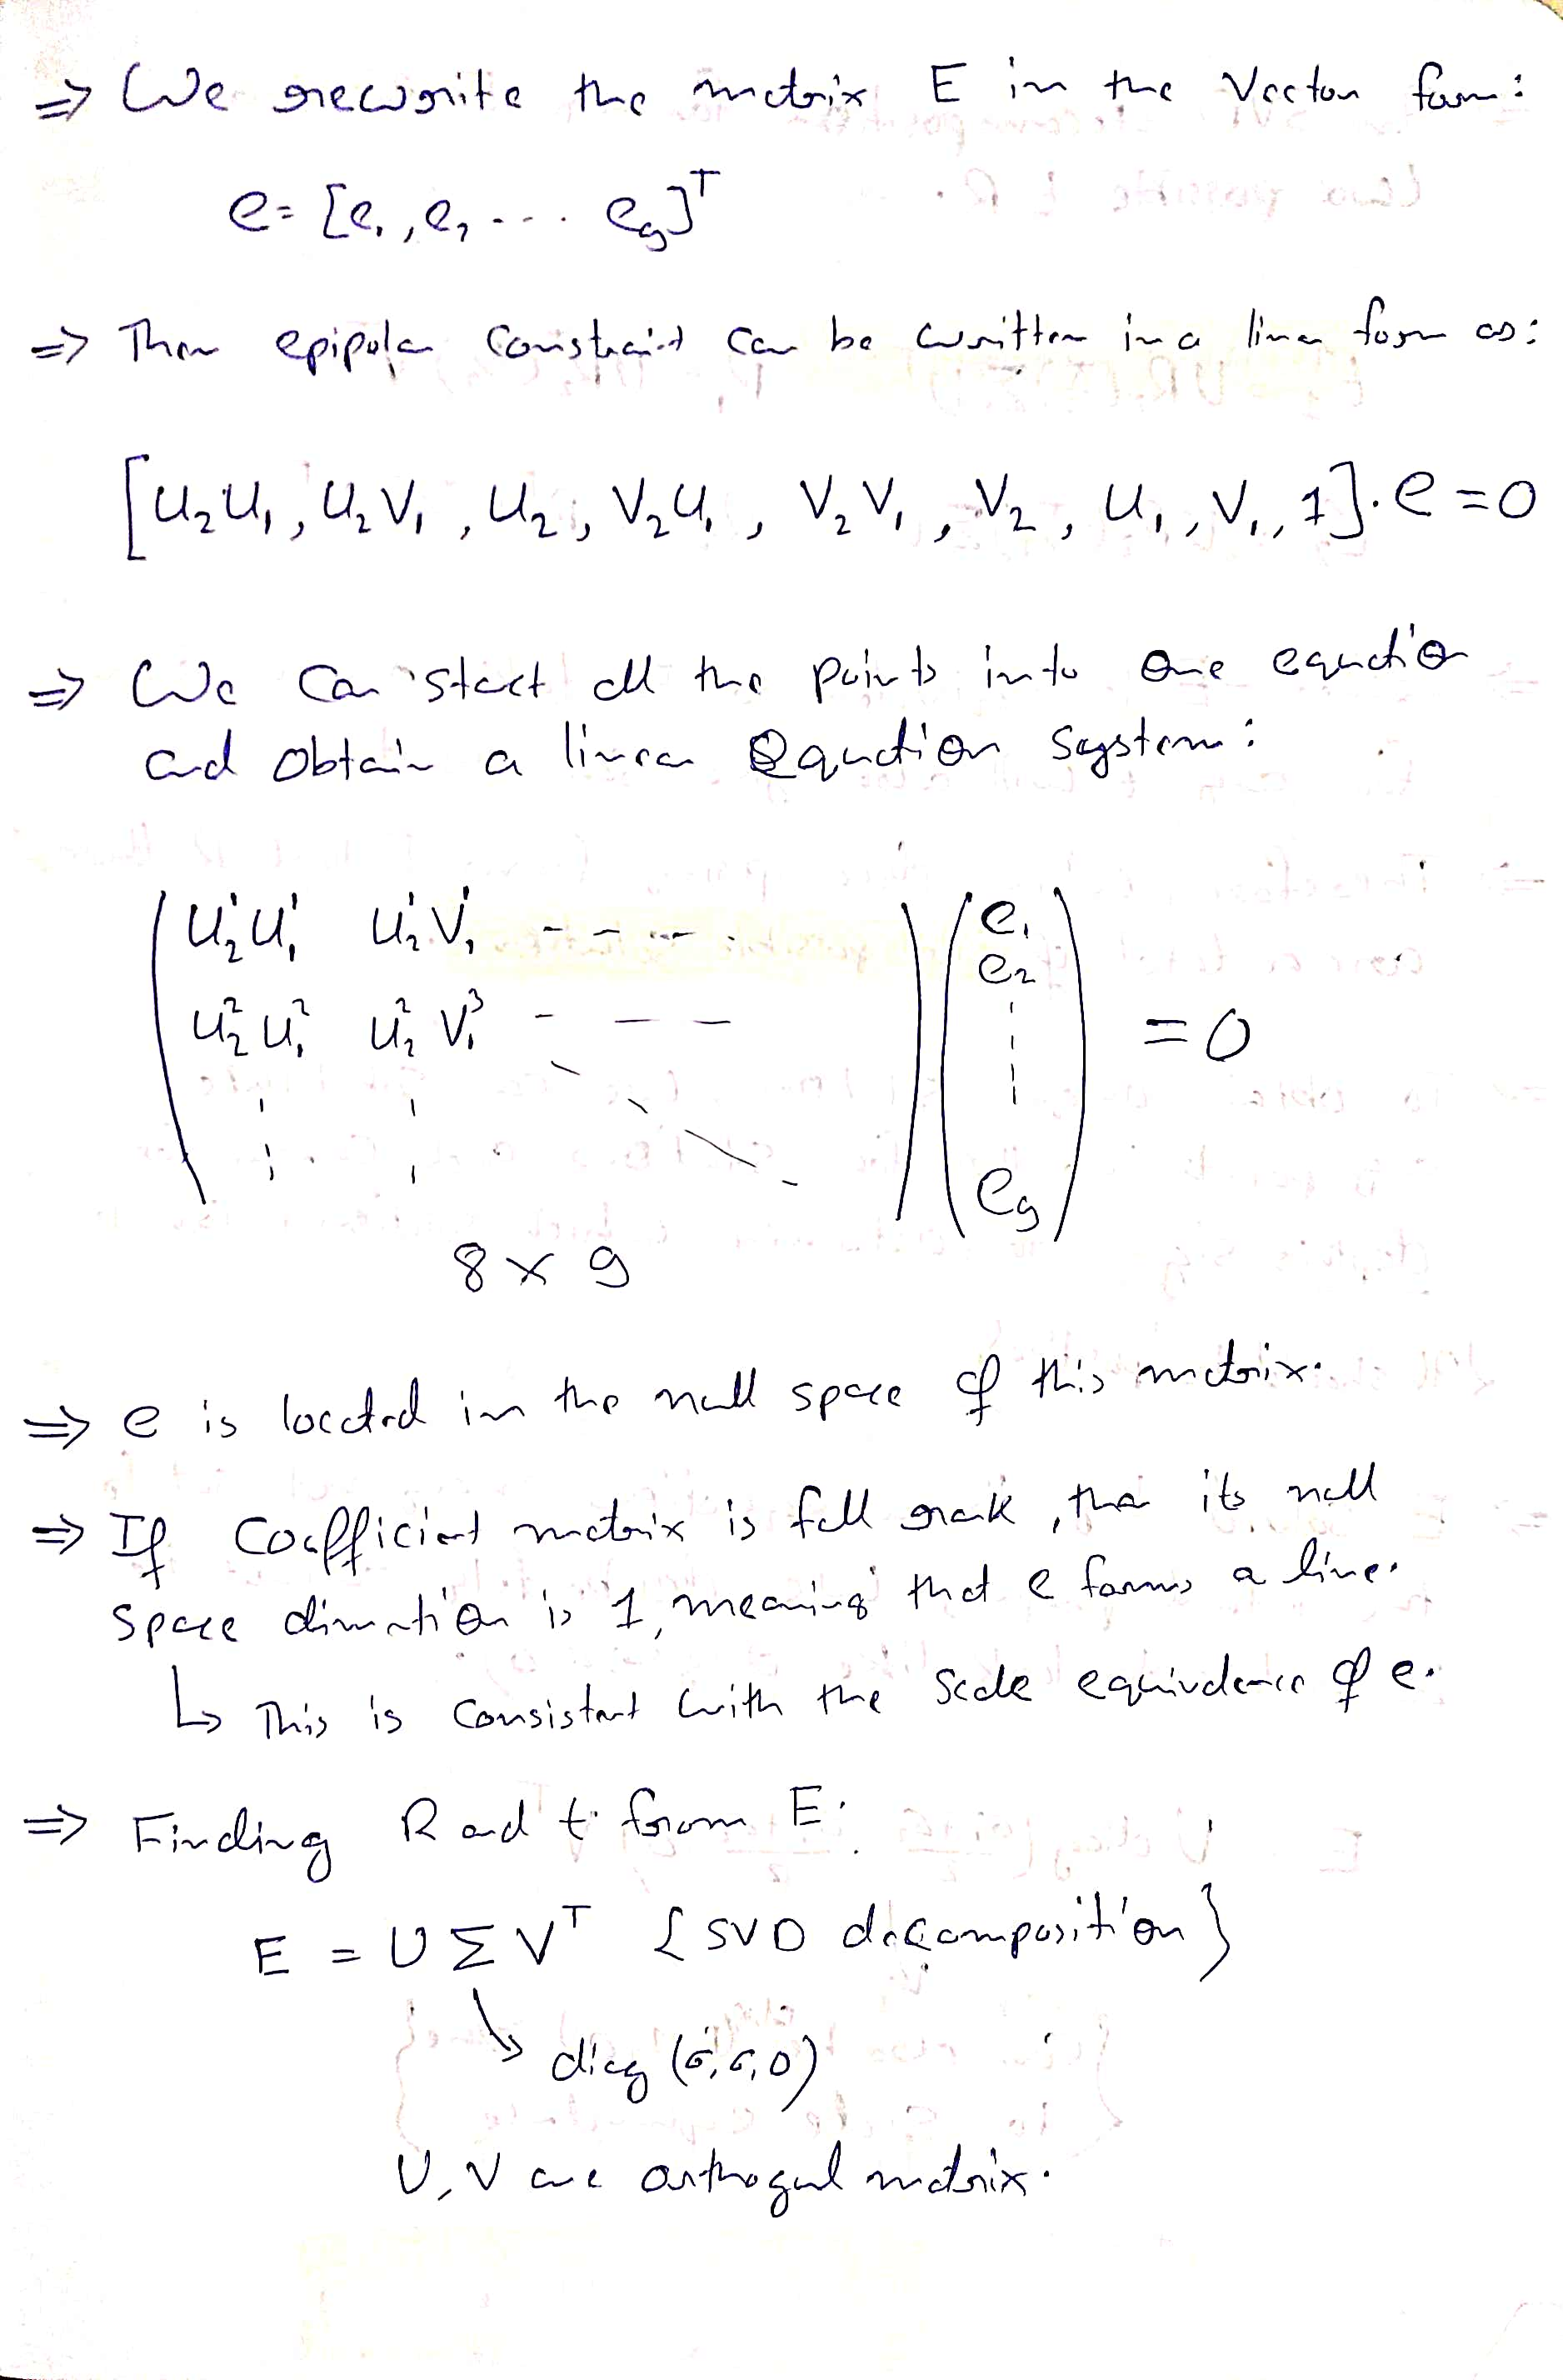 ⇒ We rewrite the matrix E in the Vector form:
e = [e₁, e₂ --- e₉]ᵀ
⇒ Then epipolar constraint can be written in a linear form as:
[u₂u₁, u₂v₁, u₂, v₂u₁, v₂v₁, v₂, u₁, v₁, 1]·e = 0
⇒ We can stact all the points into one equation
and obtain a linear Equation system:
( u₂¹u₁¹ u₂¹v₁¹ ----- ) ( e₁
e₂
u₂²u₁² u₂²v₁³ - - - = 0
e₉ )
8 × 9
⇒ e is located in the null space of this matrix.
⇒ If Coefficient matrix is full rank, then its null
space dimation is 1, meaning that e forms a line.
↳ This is consistent with the scale equivalence of e.
⇒ Finding R and t from E:
E = U Σ Vᵀ {SVD decomposition}
↘ diag (σ, σ, 0)
U, V are orthogal matrix.